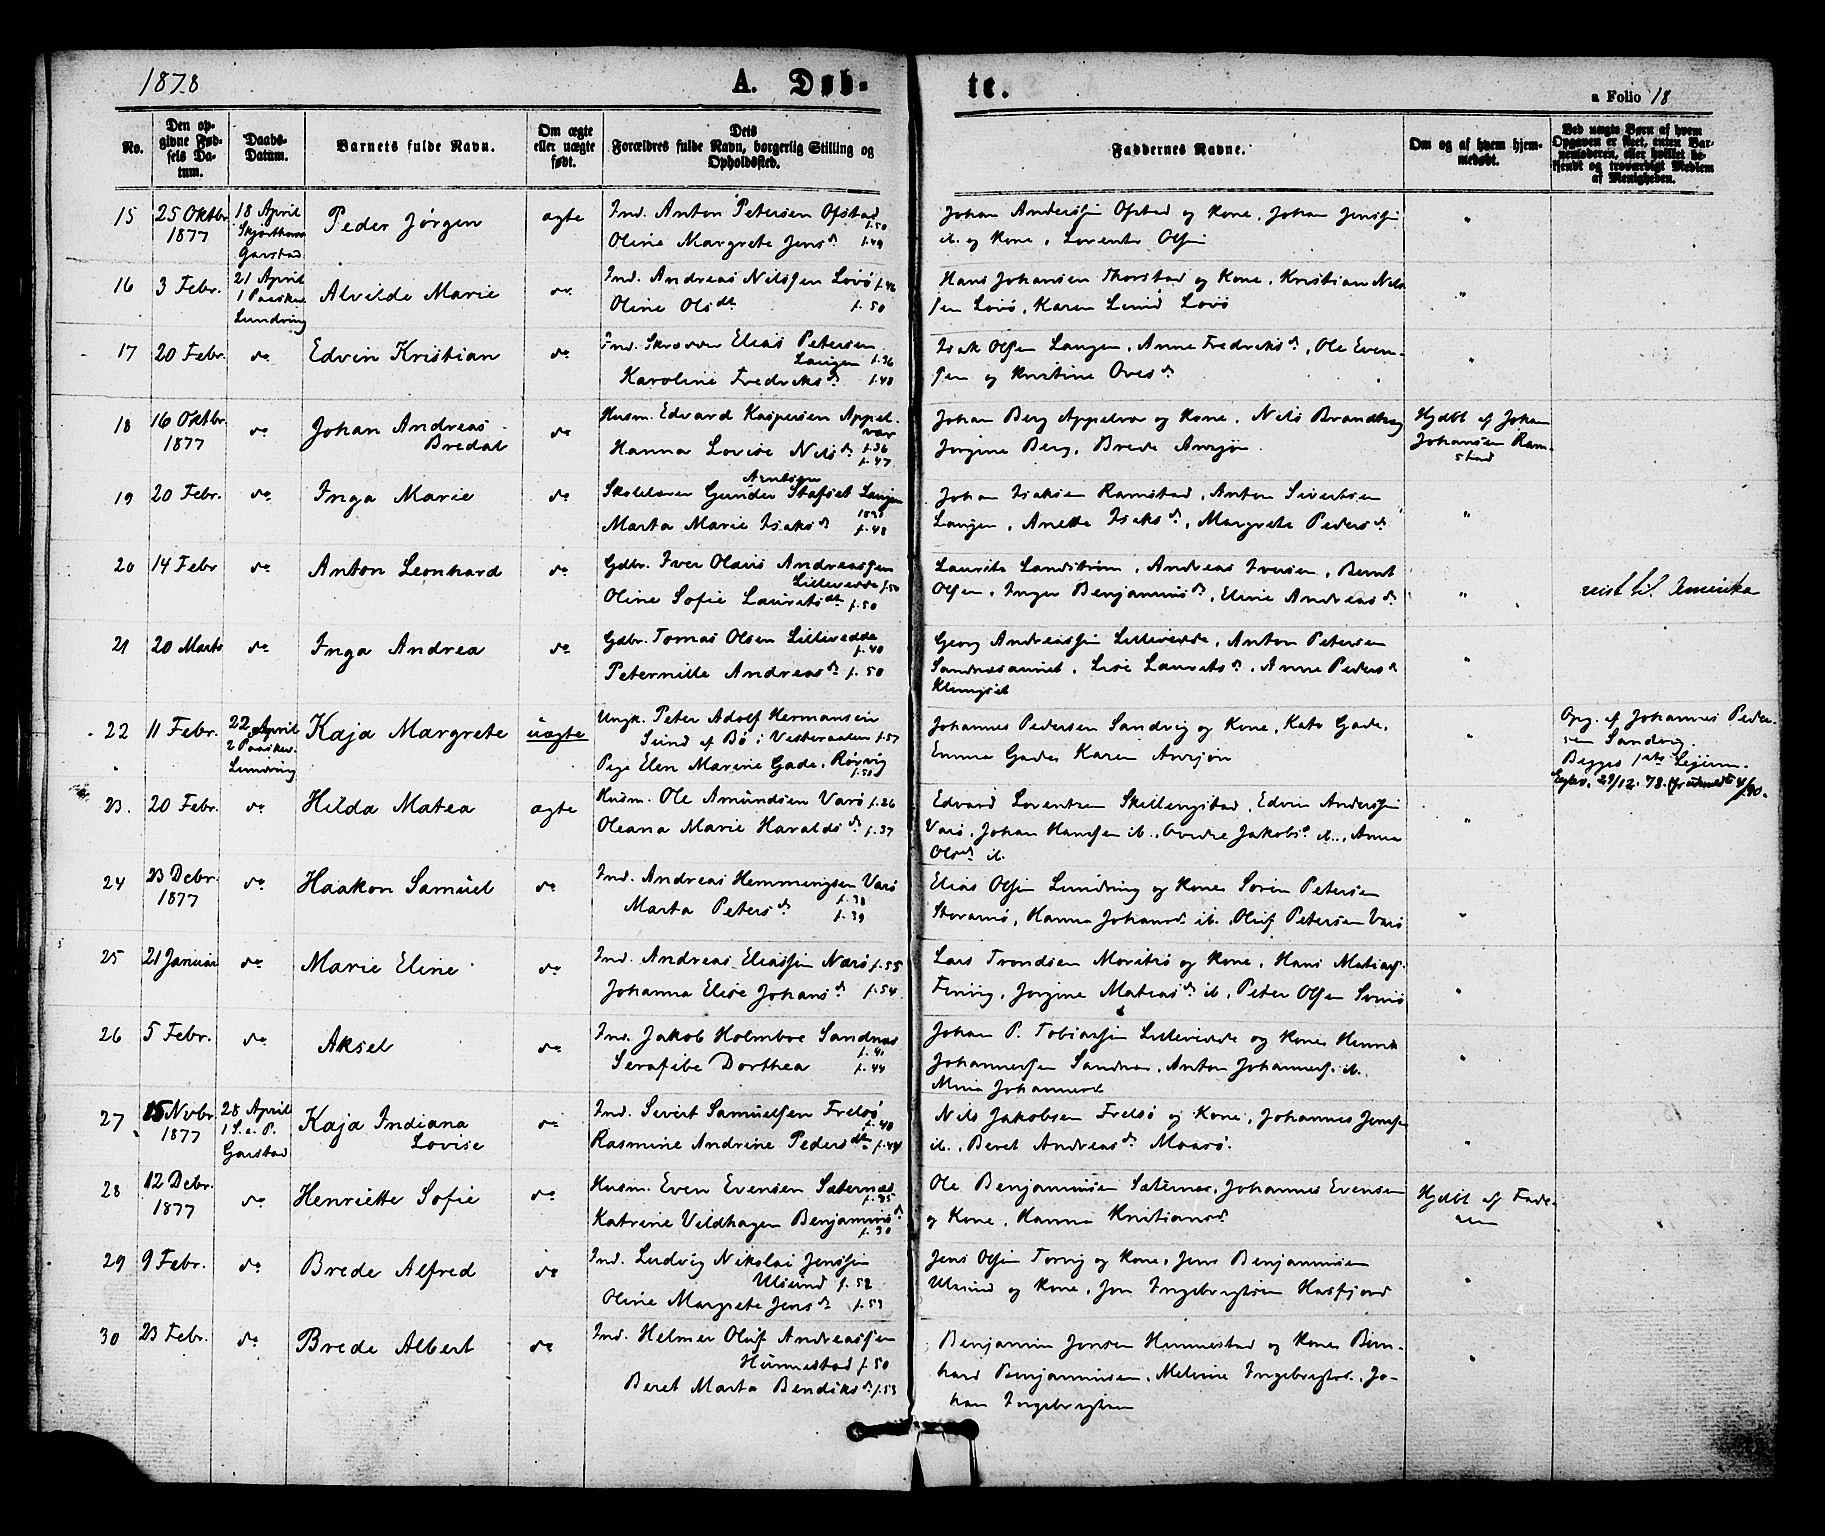 1878 A. Døb- te. a Folio 18
No. Den opgivne Fødsels Datum. Daabs-Datum. Barnets fulde Navn. Om ægte eller uægte født. Forældres fulde Navn, borgerlig Stilling og Opholdssted. Faddernes Navne. Om og af hvem hjemmedøbt.
15 25 Oktbr. 1877 18 April Skjærthorsd. Garstad Peder Jørgen ægte Ind. Anton Petersen Ofstad f.50
Oline Margrete Jensdr f.49
Johan Anderssen Ofstad og Kone, Johan Jenssen
ib. og Kone, Lorents Olsen
16 3 Febr. 21 April 1 Paaskd. Lundring Alvilde Marie do. Ind. Andreas Nilssen Lovø f.46
Oline Olsdt f.50
Hans Johansen Thorstad og Kone, Kristian Nils-
sen Lovø, Karen Lovø
17 20 Febr. do Edvin Kristian do Ind. Skrædder Elias Petersen
Laugen f.36
Karoline Fredriksdr f.40
Isak Olsen Laugen, Anne Fredriksdr, Ole Even-
sen og Kristine Ovesdr
18 16 Oktbr. 1877 do Johan Andreas Bredal do Husm. Edvard Kaspersen Appel-
vær f.36
Hanna Lovise Nilsdr f.47
Johan Berg Appelvær og Kone, Nils Brandtzæg
Jørgine Berg, Brede Avsjøn.
Hjdbt af Johan
Johansen Ram-
stad
19 20 Febr. do Inga Marie do Arntsen
Skolelærer Gunder Stafset Laugen
Marta Marie Isaksdr f.48
Johan Isaksen Ramstad, Anton Sivertsen
Laugen, Anette Isaksdr, Margrete Pedersdr
20 14 Febr do Anton Leonhard do Gdbr. Iver Olaus Andreassen
Lillevedde f.50
Oline Sofie Lauritsdt f.50
Laurits Landstrøm, Andreas Iversen, Bernt
Olsen, Inger Benjaminsdr, Eline Andreasdr
reist til Amerika
21 20 Marts do Inga Andrea do Gdbr. Tomas Olsen Lillevedde
f.40
Peternille Andreasdr f.50
Georg Andreassen Lillevedde, Anton Petersen
Lise Lauritsdr, Anne Pedersdr
22 11 Febr. 22 April 2 Paaskd. Lundring Kaja Margrete uægte Ungk. Peter Adolf Hermansein
Sund af Bø i Vesteraalen f.57
Pige Elen Marine Gade, Rørvig
Johannes Pedersen Sandvig og Kone, Kato Gade,
Emma Gade, Karen Avsjøn
Opg. af Johannes Peder-
sen Sandvig
Begges 1ste Leierm.
23. 20 Febr. do Hilda Matea ægte Husm. Ole Amundsen Varø f.26
Oleana Marie Haraldsdr f.37
Edvard Lorentzen Skillingstad, Edvin Anderssen
Varø, Johan Hanssen ib., Jakobsd ib., Anna
Olsdt ib.
24 23 Debr. 1877 do Haakon Samuel do Ind. Andreas Hemmingsen Varø
f.38
Marta Petersdr f.39
Elias Olsen Lundring og Kone, Søren Petersen
Hanna Johansd ib., Oluf Petersen Varø
25 21 Januar do Marie Eline do Ind. Andreas Eliassen Nærø f.55
Johanna Elise Johansdr f.54
Lars Trondsen og Kone, Hans Matiass.
Finnig, Jørgine Mateasdr ib., Peter Olsen
26 5 Febr. do Aksel do Ind. Jakob Holmboe Sandnæs
f.41
Dorthea f.44
Johan P. Tobiassen Lillevedde og Kone, Henrik
Johannessen Sandnæs, Anton Johanness. ib.
Johannesd
27 15 Novbr. 1877 28 April 1 S. e. P. Garstad Kaja Indiana Lovise do Ind. Sivert Samuelsen Frelsø
f.40
Rasmine Andrine Pedersdt f.44
Nils Jakobsen Frelsø og Kone, Johannes Jenssen
ib., Beret Andreasdr
28 12 Debr. 1877 do Henriette Sofie do Husm. Even Evensen Sæternæs
f.35
Katrine Vildhagen Benjaminsdr
f.30
Ole Benjaminsen Sæternes, Johannes Evensen
og Kone, Hanna Kristiansd
Hjdbt af Fade-
ren
29 9 Febr. do Brede Alfred do Ind. Ludvig Nikolai Jenssen
Ulsund f.52
Oline Margrete Jensdr f.53
Jens Olsen Torvig og Kone, Jens Benjaminsen
Ulsund og Kone, Jon Ingebrigtsen Horsfjord
30 23 Febr. do Brede Albert do Ind. Helmer Oluf Andreassen
Hunnestad f.50
Beret Marta Bendiksdr f.53
Benjamin Jensen Hunnestad og Kone, Bern-
hard Benjaminsen, Meline Ingebrigtsd., Jo-
han Ingebrigtsen